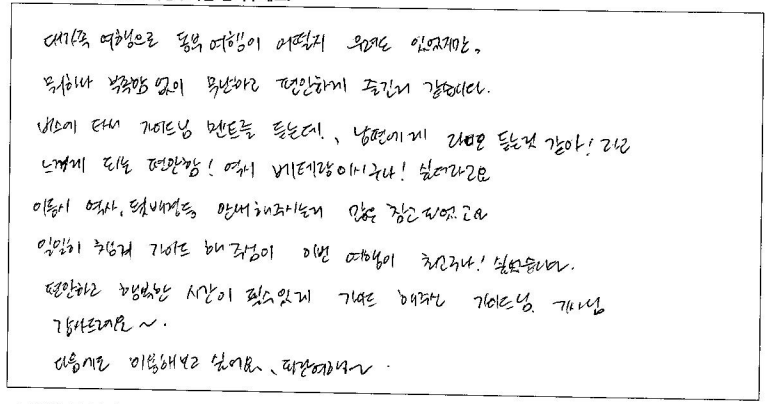 대가족 여행으로 동부여행이 어떨지 우려도 있었지만,
뭐하나 부족함 없이 무난하고 편안하게 즐긴거 같습니다.
버스에 타서 가이드님 멘트를 듣는데, 남편에게 라디오 듣는것 같아! 라고
느끼게 되는 편안함! 역시 베테랑이시구나! 싶더라고요
이동시 역사, 배경등 안내해주시는거 많은 참고 되었고요
일일히 챙겨 가이드 해주심이 이번 여행이 최고구나! 싶었습니다.
편안하고 행복한 시간이 될수있게 가이드 해주신 가이드님, 기사님
감사드려요~.
다음에도 이용해보고 싶어요,